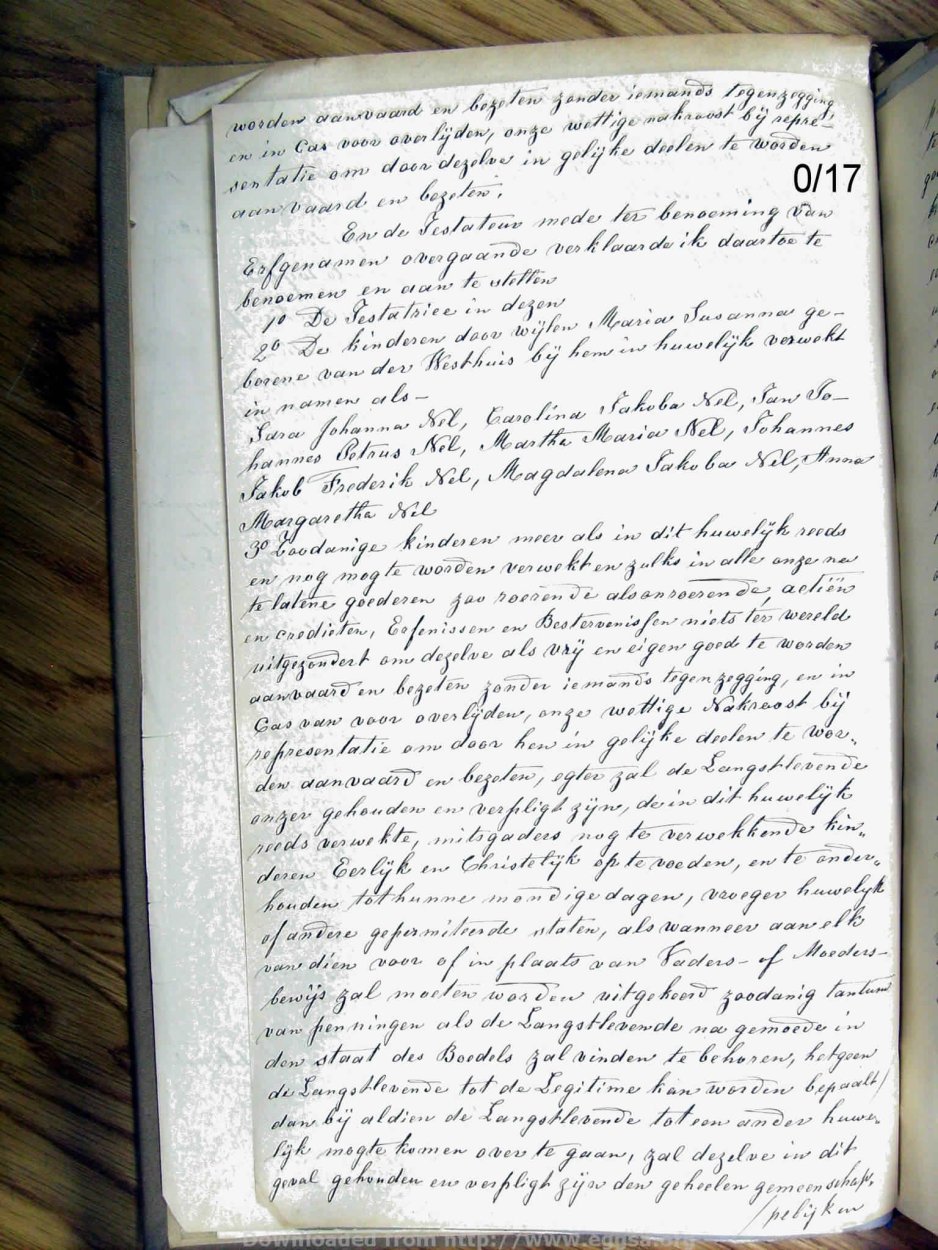 worden aanvaard en bezeten zonder iemands tegenzegging,
en in Cas voor overlijden, onze wettige nakroost bij repre-
sentatie om door dezelve in gelijke deelen te worden
aanvaard en bezeten.
0/17
En de Testateur mede ter benoeming van
Erfgenamen overgaande verklaarde ik daartoe te
benoemen en aan te stellen
1o De Testatrice in dezen
2o De kinderen door wijlen Maria Susanna ge-
borene van der Westhuis bij hem in huwelijk verwekt
in namen als -
Sara Johanna Nel, Carolina Jakoba Nel, Jan Jo-
hannes Petrus Nel, Martha Maria Nel, Johannes
Jakob Frederik Nel, Magdalena Jakoba Nel, Anna
Margaretha Nel
3o Zoodanige kinderen meer als in dit huwelijk reeds
en nog mogte worden verwekt en zulks in alle onze na
te latene goederen zoo roerende als onroerende, actiën
en credieten, Erfenissen en Bestervenissen niets ter wereld
uitgezondert om dezelve als vrij en eigen goed te worden
aanvaard en bezeten zonder iemands tegenzegging, en in
Cas van voor overlijden, onze wettige Nakroost bij
representatie om door hen in gelijke deelen te wor„
den aanvaard en bezeten, egter zal de Langstlevende
onzer gehouden en verpligt zijn, de in dit huwelijk
reeds verwekte, mitsgaders nog te verwekkende kin„
deren Eerlijk en Christelijk op te voeden, en te onder„
houden tot hunne mondige dagen, vroeger huwelijk
of andere gepermiteerde staten, als wanneer aan elk
van dien voor of in plaats van Vaders- of Moeders-
bewijs zal moeten worden uitgekeerd zoodanig tantum
van penningen als de Langstlevende na gemoede in
den staat des Boedels zal vinden te behoren, hetgeen
de Langstlevende tot de Legitime kan worden bepaalt/
dan bij aldien de Langstlevende tot een ander huwe„
lijk mogte komen over te gaan, zal dezelve in dit
geval gehouden en verpligt zijn den geheelen gemeenschap„
/pelijken
Downloaded from http://www.eggsa.org